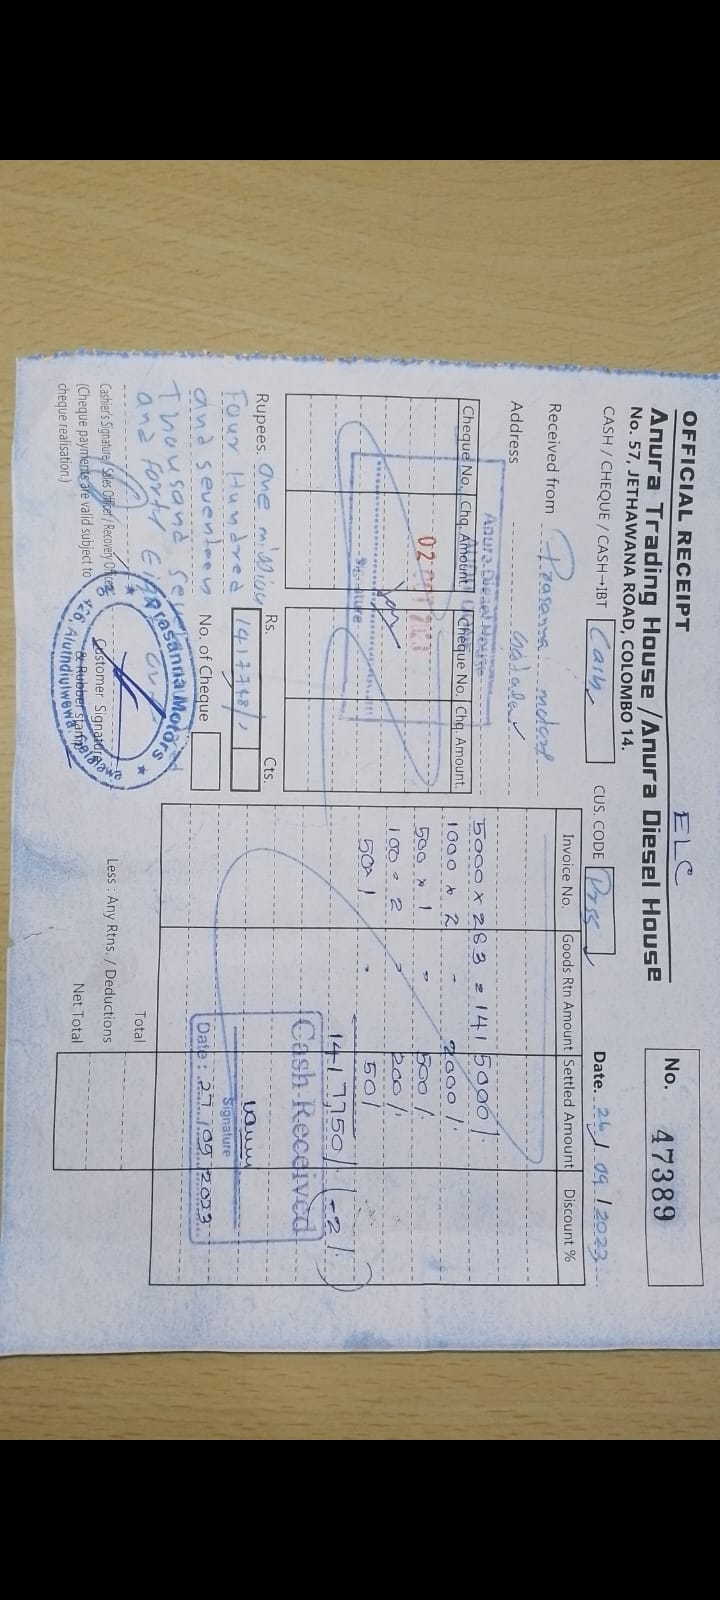 OFFICIAL RECEIPT
ELC
Anura Trading House / Anura Diesel House
No. 57, JETHAWANA ROAD, COLOMBO 14.
No. 47389
CASH / CHEQUE / CASH→IBT Cash
CUS. CODE
Date. 26/09/2023
Received from Prasanna motors
Address
Cheque No. Chq. Amount Cheque No. Chq. Amount
Anura Diesel House
02
Signature
Rupees. One million
Four Hundred
and seventeen
Thousand seven
and forty
Rs. Cts.
1417748/
No. of Cheque
Cashier's Signature/ Sales Officer / Recovery Officer
(Cheque payments are valid subject to
cheque realisation.)
Customer Signature
& Rubber Stamp
Prasanna Motors
Invoice No. Goods Rtn Amount Settled Amount Discount %
5000 x 283 = 1415000/.
1000 x 2 - 2000/.
500 x 1 = 500/.
100 - 2 200/.
50 1 50/
1417,750/. (-2/.)
Cash Received
Signature
Date : 27/09/2023
Total
Less : Any Rtns. / Deductions
Net Total